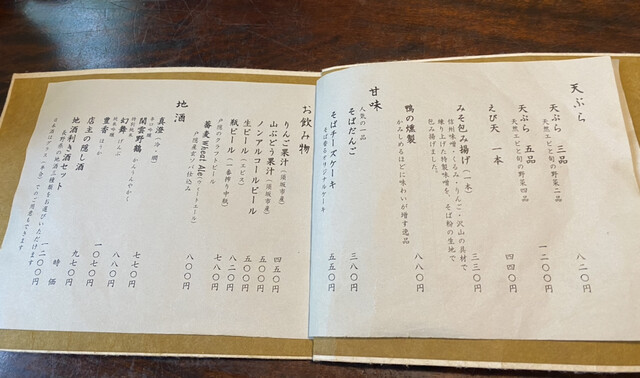 天ぷら
天ぷら 三品 八二〇円
天然エビと旬の野菜二品
天ぷら 五品 一二〇〇円
天然エビと旬の野菜四品
えび天 一本 四四〇円
みそ包み揚げ（一本） 三三〇円
信州味噌・くるみ・りんご・沢山の具材で
練り上げた特製味噌を、そば粉の生地で
包み揚げました。
鴨の燻製 八八〇円
かみしめるほどに味わいが増す逸品
甘味
人気の一品
そばだんご 三八〇円
そばチーズケーキ 五五〇円
そば香るオリジナルケーキ
お飲み物
りんご果汁（須坂市産） 四五〇円
山ぶどう果汁（須坂市産） 五〇〇円
ノンアルコールビール 五〇〇円
生ビール（ヱビス） 八二〇円
瓶ビール（一番搾り中瓶） 七八〇円
戸隠のクラフトビール
蕎麦Wheat Ale（ウィートエール） 八〇〇円
戸隠産玄ソバ仕込み
地酒
真澄（冷・燗） 七七〇円
辛口吟醸
閑雲野鶴 かんうんややかく 八八〇円
特別純米
幻舞 げんぶ 一〇七〇円
純米吟醸
豊香 ほうか 九七〇円
店主の隠し酒 時価
地酒利き酒セット 一二〇〇円
長野県の地酒三種類をお選びいただけます